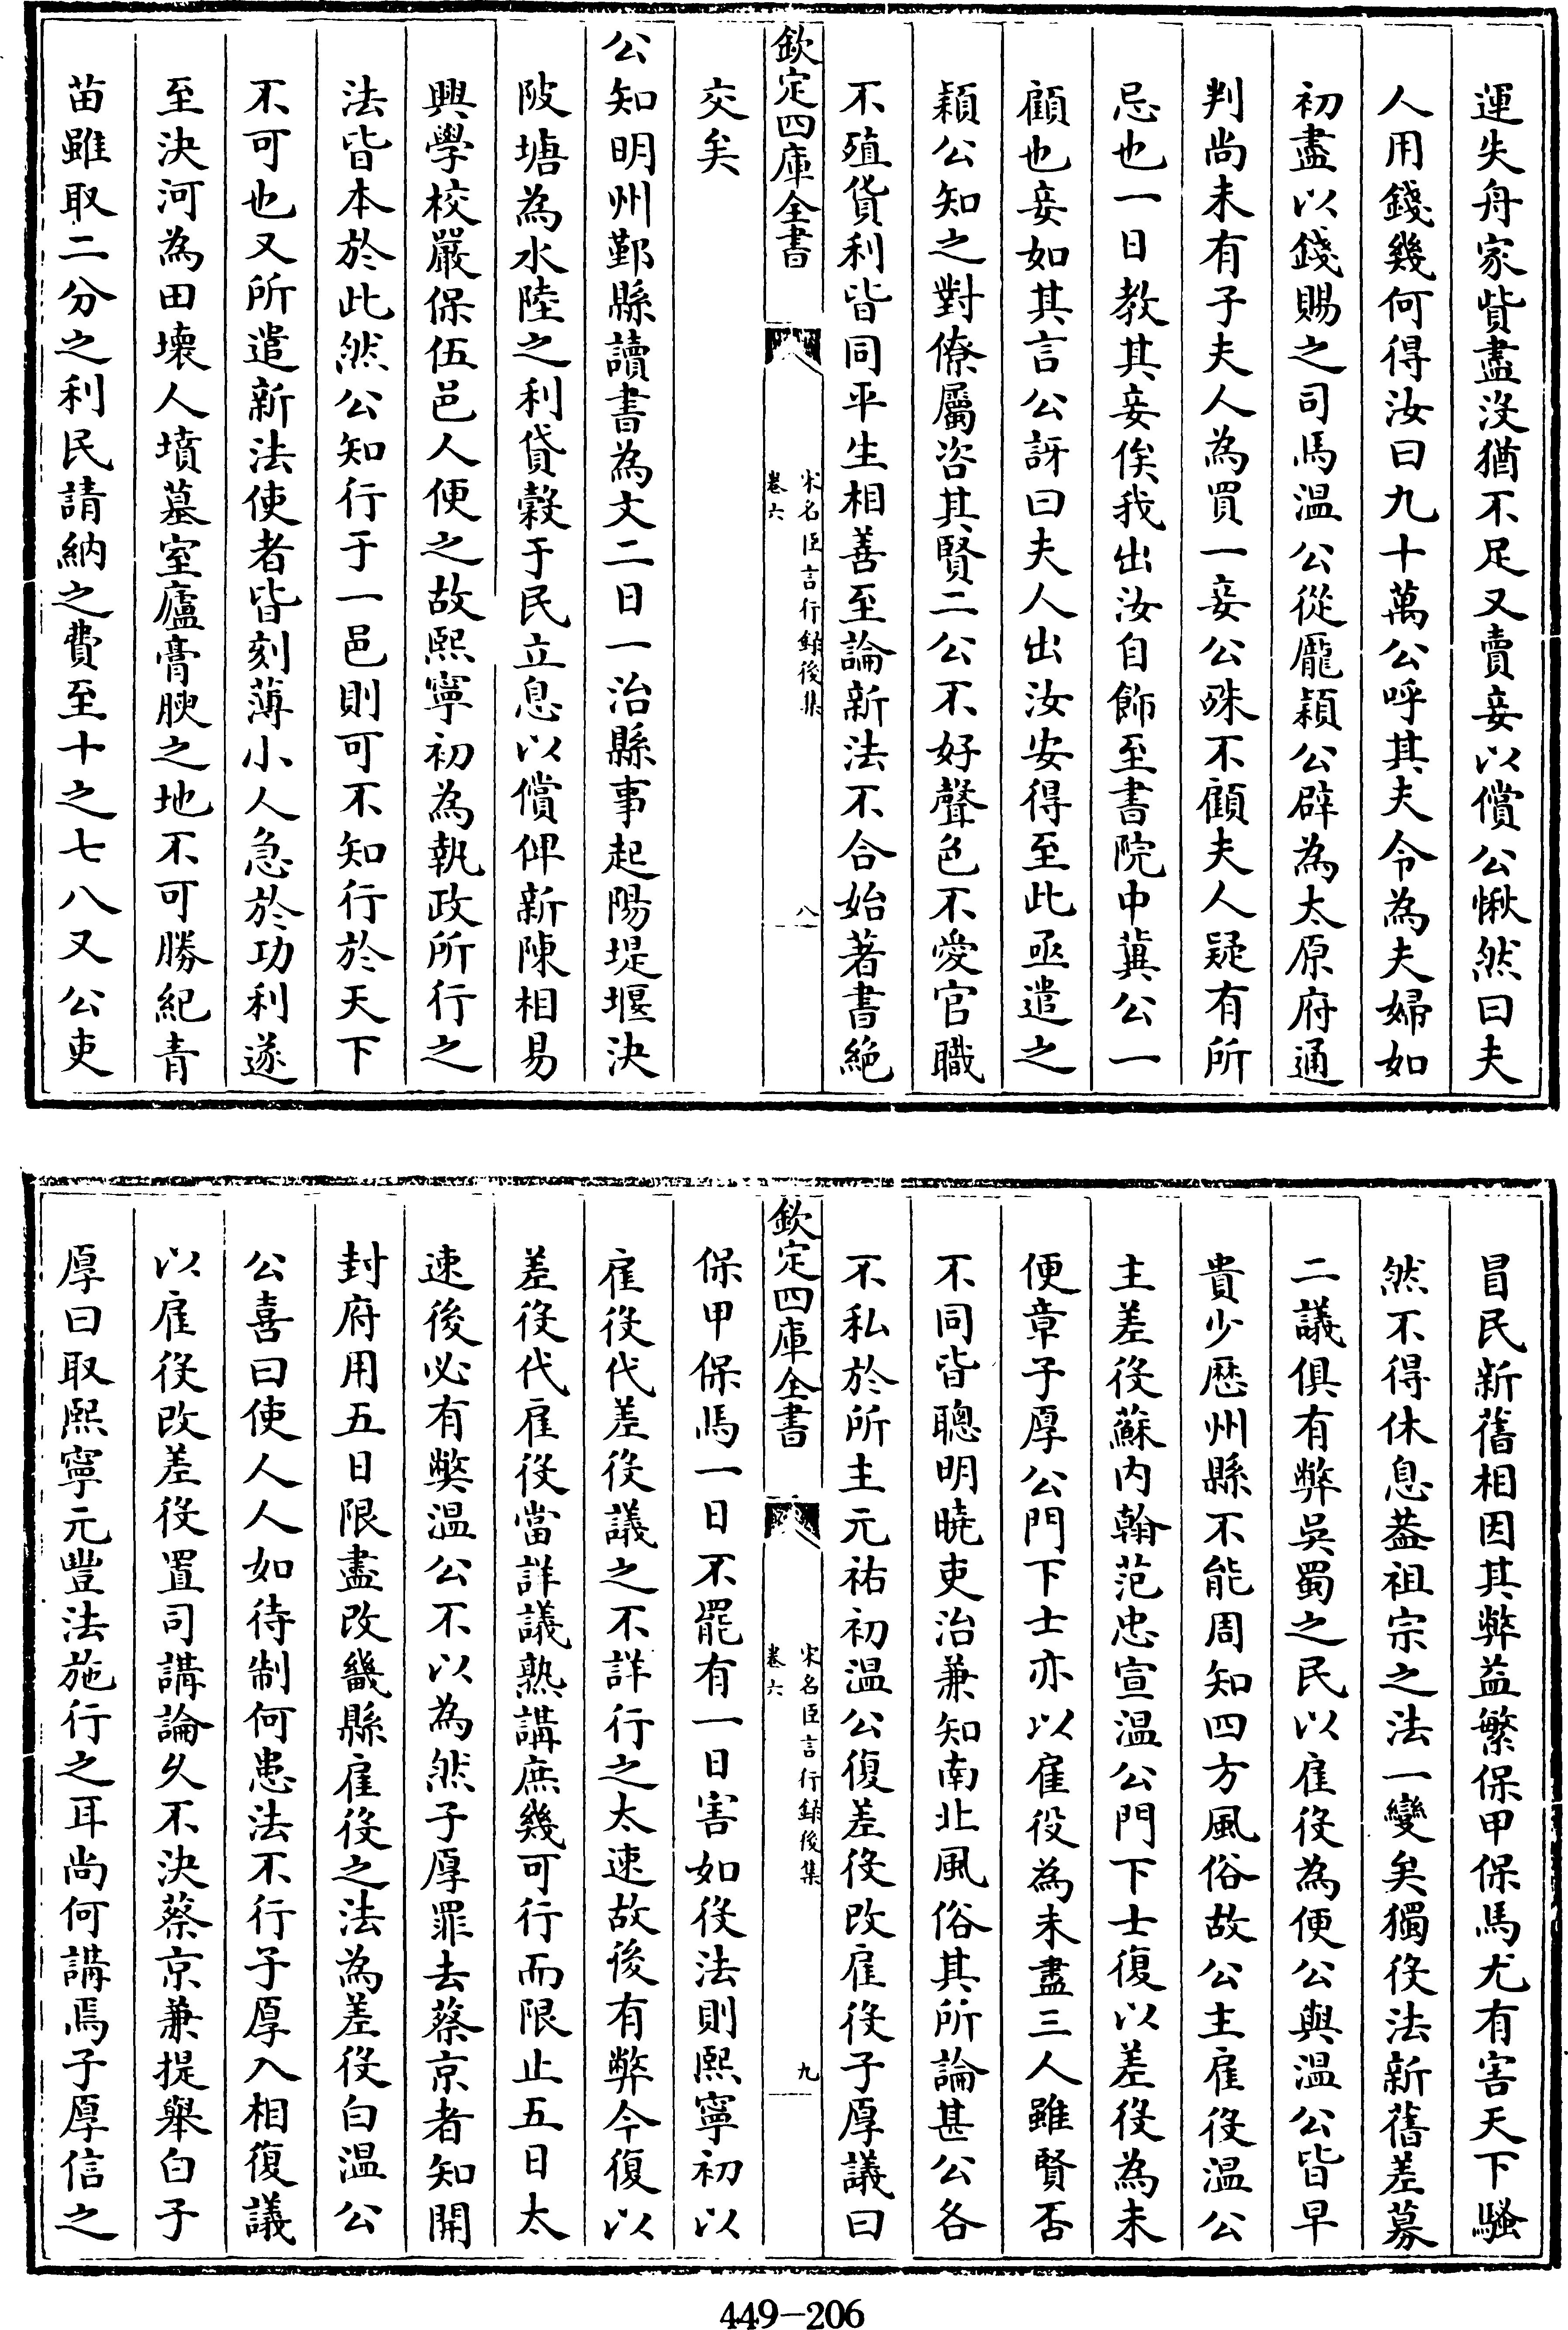 運失舟家貲盡沒猶不足又賣妾以償公愀然曰夫
人用錢幾何得汝曰九十萬公呼其夫令為夫婦如
初盡以錢賜之司馬温公從龎穎公辟為太原府通
判尚未有子夫人為買一妾公殊不顧夫人疑有所
忌也一日教其妾俟我出汝自飾至書院中冀公一
顧也妾如其言公訝曰夫人出汝安得至此亟遣之
穎公知之對僚屬咨其賢二公不好聲色不愛官職
不殖貨利皆同平生相善至論新法不合始著書絕
欽定四庫全書
宋名臣言行錄後集
卷六
八
交矣
公知明州鄞縣讀書為文二日一治縣事起陽堤堰決
陂塘為水陸之利貸穀于民立息以償俾新陳相易
興學校嚴保伍邑人便之故熙寧初為執政所行之
法皆本於此然公知行于一邑則可不知行於天下
不可也又所遣新法使者皆刻薄小人急於功利遂
至決河為田壞人墳墓室廬膏腴之地不可勝紀青
苗雖取二分之利民請納之費至十之七八又公吏
冒民新舊相因其弊益繁保甲保馬尤有害天下騷
然不得休息葢祖宗之法一變矣獨役法新舊差募
二議俱有弊吳蜀之民以雇役為便公與温公皆早
貴少歷州縣不能周知四方風俗故公主雇役温公
主差役蘇内翰范忠宣温公門下士復以差役為未
便章子厚公門下士亦以雇役為未盡三人雖賢否
不同皆聰明曉吏治兼知南北風俗其所論甚公各
不私於所主元祐初温公復差役改雇役子厚議曰
欽定四庫全書
宋名臣言行錄後集
卷六
九
保甲保馬一日不罷有一日害如役法則熙寧初以
雇役代差役議之不詳行之太速故後有弊今復以
差役代雇役當詳議熟講庶幾可行而限止五日太
速後必有弊温公不以為然子厚罪去蔡京者知開
封府用五日限盡改畿縣雇役之法為差役白温公
公喜曰使人人如待制何患法不行子厚入相復議
以雇役改差役置司講論久不決蔡京兼提舉白子
厚曰取熙寧元豐法施行之耳尚何講焉子厚信之
449-206